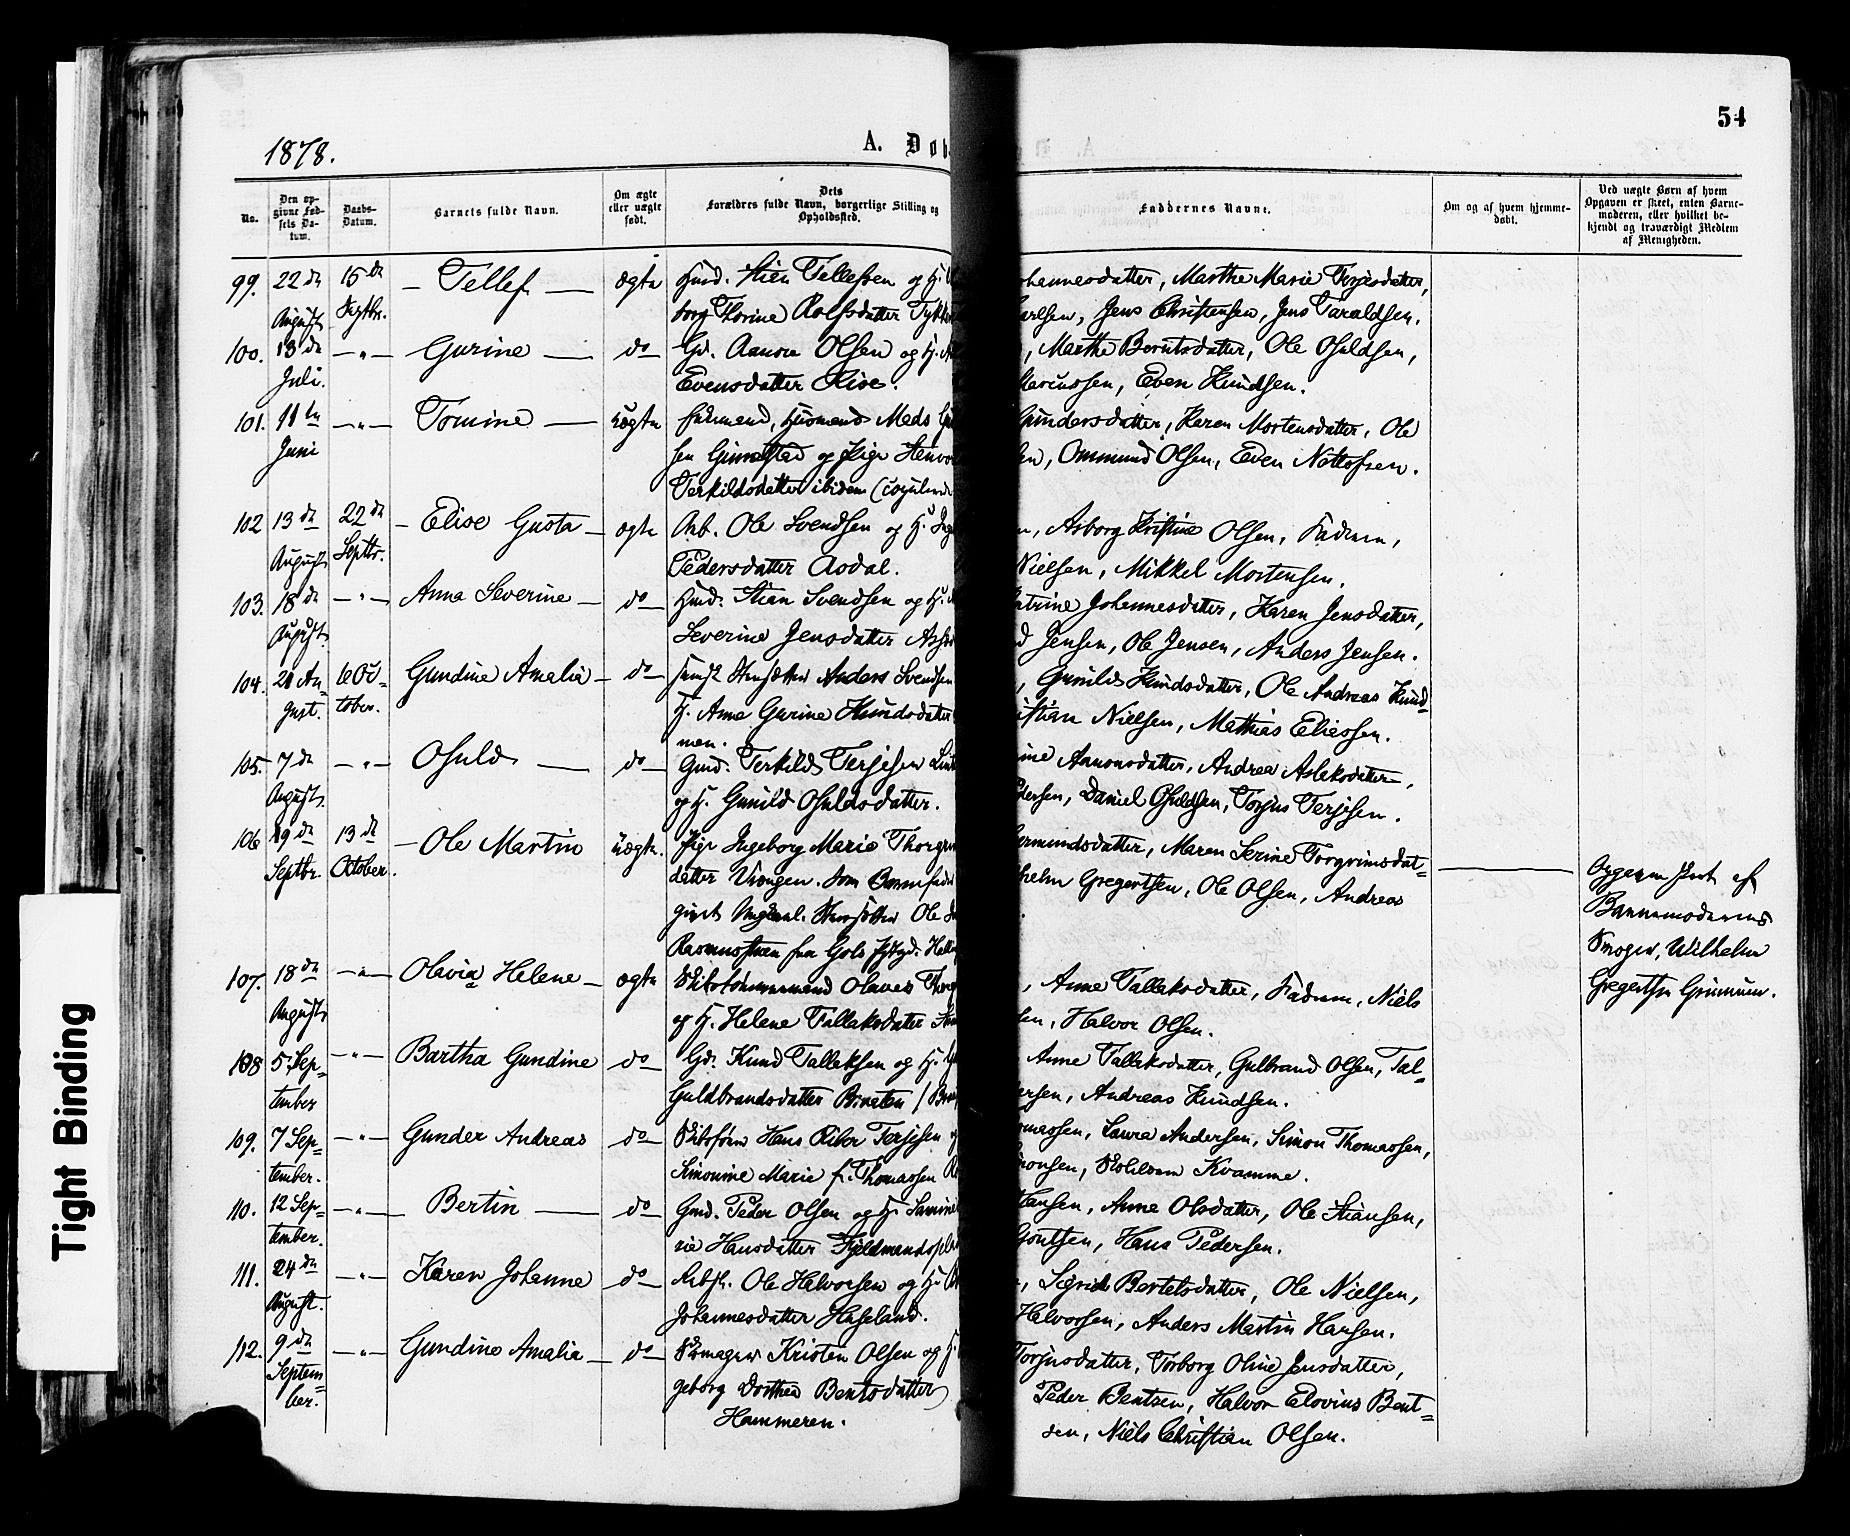 54
1878.
A. Døb
No.
Den op-
givne Fød-
sels Da-
tum.
Daabs-
Datum.
Barnets fulde Navn.
Om ægte
eller uægte
født.
Dets
Forældres fulde Navn, borgerlige Stilling og
Opholdssted.
Faddernes Navne.
Om og af hvem hjemme-
døbt.
Ved uægte Børn af hvem
Opgaven er skeet, enten Barne-
moderen, eller hvilket be-
kjendt og troværdigt Medlem
af Menigheden.
99. 22de 15de – Tellef – ægte Huusmd. Stien Tellefsen og H.
August Septbr. borg Thorine Rolfsdatter
hannesdatter, Marthe Marie Terjesdatter,
arlsen, Jens Christensen, Jens Taraldsen.
100. 13de –„– Gurine – do Gd. Aanon Olsen og H.
Juli. Evensdatter Rise.
, Marthe Berntsdatter, Ole Osuldsen,
Marcussen, Even Knudsen.
101. 11te –„– Tomine – uægte Mads
Juni sen Gimestad og Pige
Terkildsdatter ibidem
Gundersdatter, Karen Mortensdatter, Ole
sen, Ommund Olsen, Even Nottolfsen.
102 13de 22de – Elise Gusta – ægte Arb. Ole Svendsen og H.
August Septbr. Pedersdatter Aasdal.
n, Asborg Kristine Olsen, Faderen,
Nielsen, Mikkel Mortensen.
103. 18de –„– Anna Severine – do Huusmd. Stian Svendsen og H.
August. Severine Jensdatter
atrine Johannesdatter, Karen Jensdatter,
d Jensen, Ole Jensen, Anders Jensen.
104. 21 Au- 6 Oc- Gundine Amalia – do Anders Svendsen
gust. tober. H. Anne Gurine Knudsdatter
men.
, Gunild Knudsdatter, Ole Andreas Knud-
istian Nielsen, Mathias Eliessen.
105. 7de –„– Osuld – do Gmd. Terkild Terjesen
August. og H. Gunild Osuldsdatter.
ine Aanonsdatter, Andrea Asleksdatter,
Pedersen, Daniel Osuldsen, Torjus Terjesen.
106 19de 13de – Ole Martin uægte. Pige Ingeborg Marie Thorgrims
Septbr. October. datter Vrengen. Som Barnefader
givet Ungkarl. Ole
Rasmussen fra
ermundsdatter, Maren Serine Torgrimsdat-
helm Gregertsen, Ole Olsen, Andreas
Opgaven skeet af
Barnemoderens
Svoger, Wilhelm
Gregertsen Grimnum.
107. 18de –„– Olavia Helene – ægte Skibstømmermand Olaves
August og H. Helene Tallaksdatter
, Anne Tallaksdatter, Faderen, Niels
sen, Halvor Olsen.
108 5. Sep- –„– Bartha Gundine do Gd. Knud Tallaksen og H.
tember Guldbrandsdatter Braaten
Anne Tallaksdatter, Gulbrand Olsen, Tal-
ersen, Andreas Knudsen.
109. 7 Sep- –„– Gunder Andreas do Skibsfører Hans Riber Terjesen
tember. Simonine Marie f. Thomassen
omassen, Laura Andersen, Simon Thomassen,
monsen, Kvamme.
110. 12 Sep- –„– Bertin – do Gmd. Peder Olsen og H.
tember. rie Hansdatter
Hansen, Anne Olsdatter, Ole Stiansen,
Goutsen, Hans Pedersen.
111. 24de –„– Karen Johanne do Ole Halvorsen og H.
August. Johannesdatter Haseland.
, Sigrid Bertelsdatter, Ole Nielsen,
Halvorsen, Anders Martin Hansen.
112. 9de –„– Gundine Amalia – do Skomager Kristen Olsen og H.
Septem- geborg Dorthea Bentsdatter
ber. Hammeren.
Torjusdatter, Torborg Oline Jensdatter,
Peder Bentsen, Halvor Elovius Bent-
sen, Niels Christian Olsen.
Tight Binding